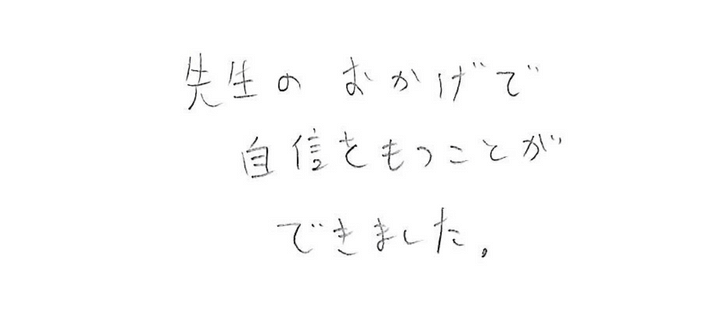 先生のおかげで
自信をもつことが
できました。